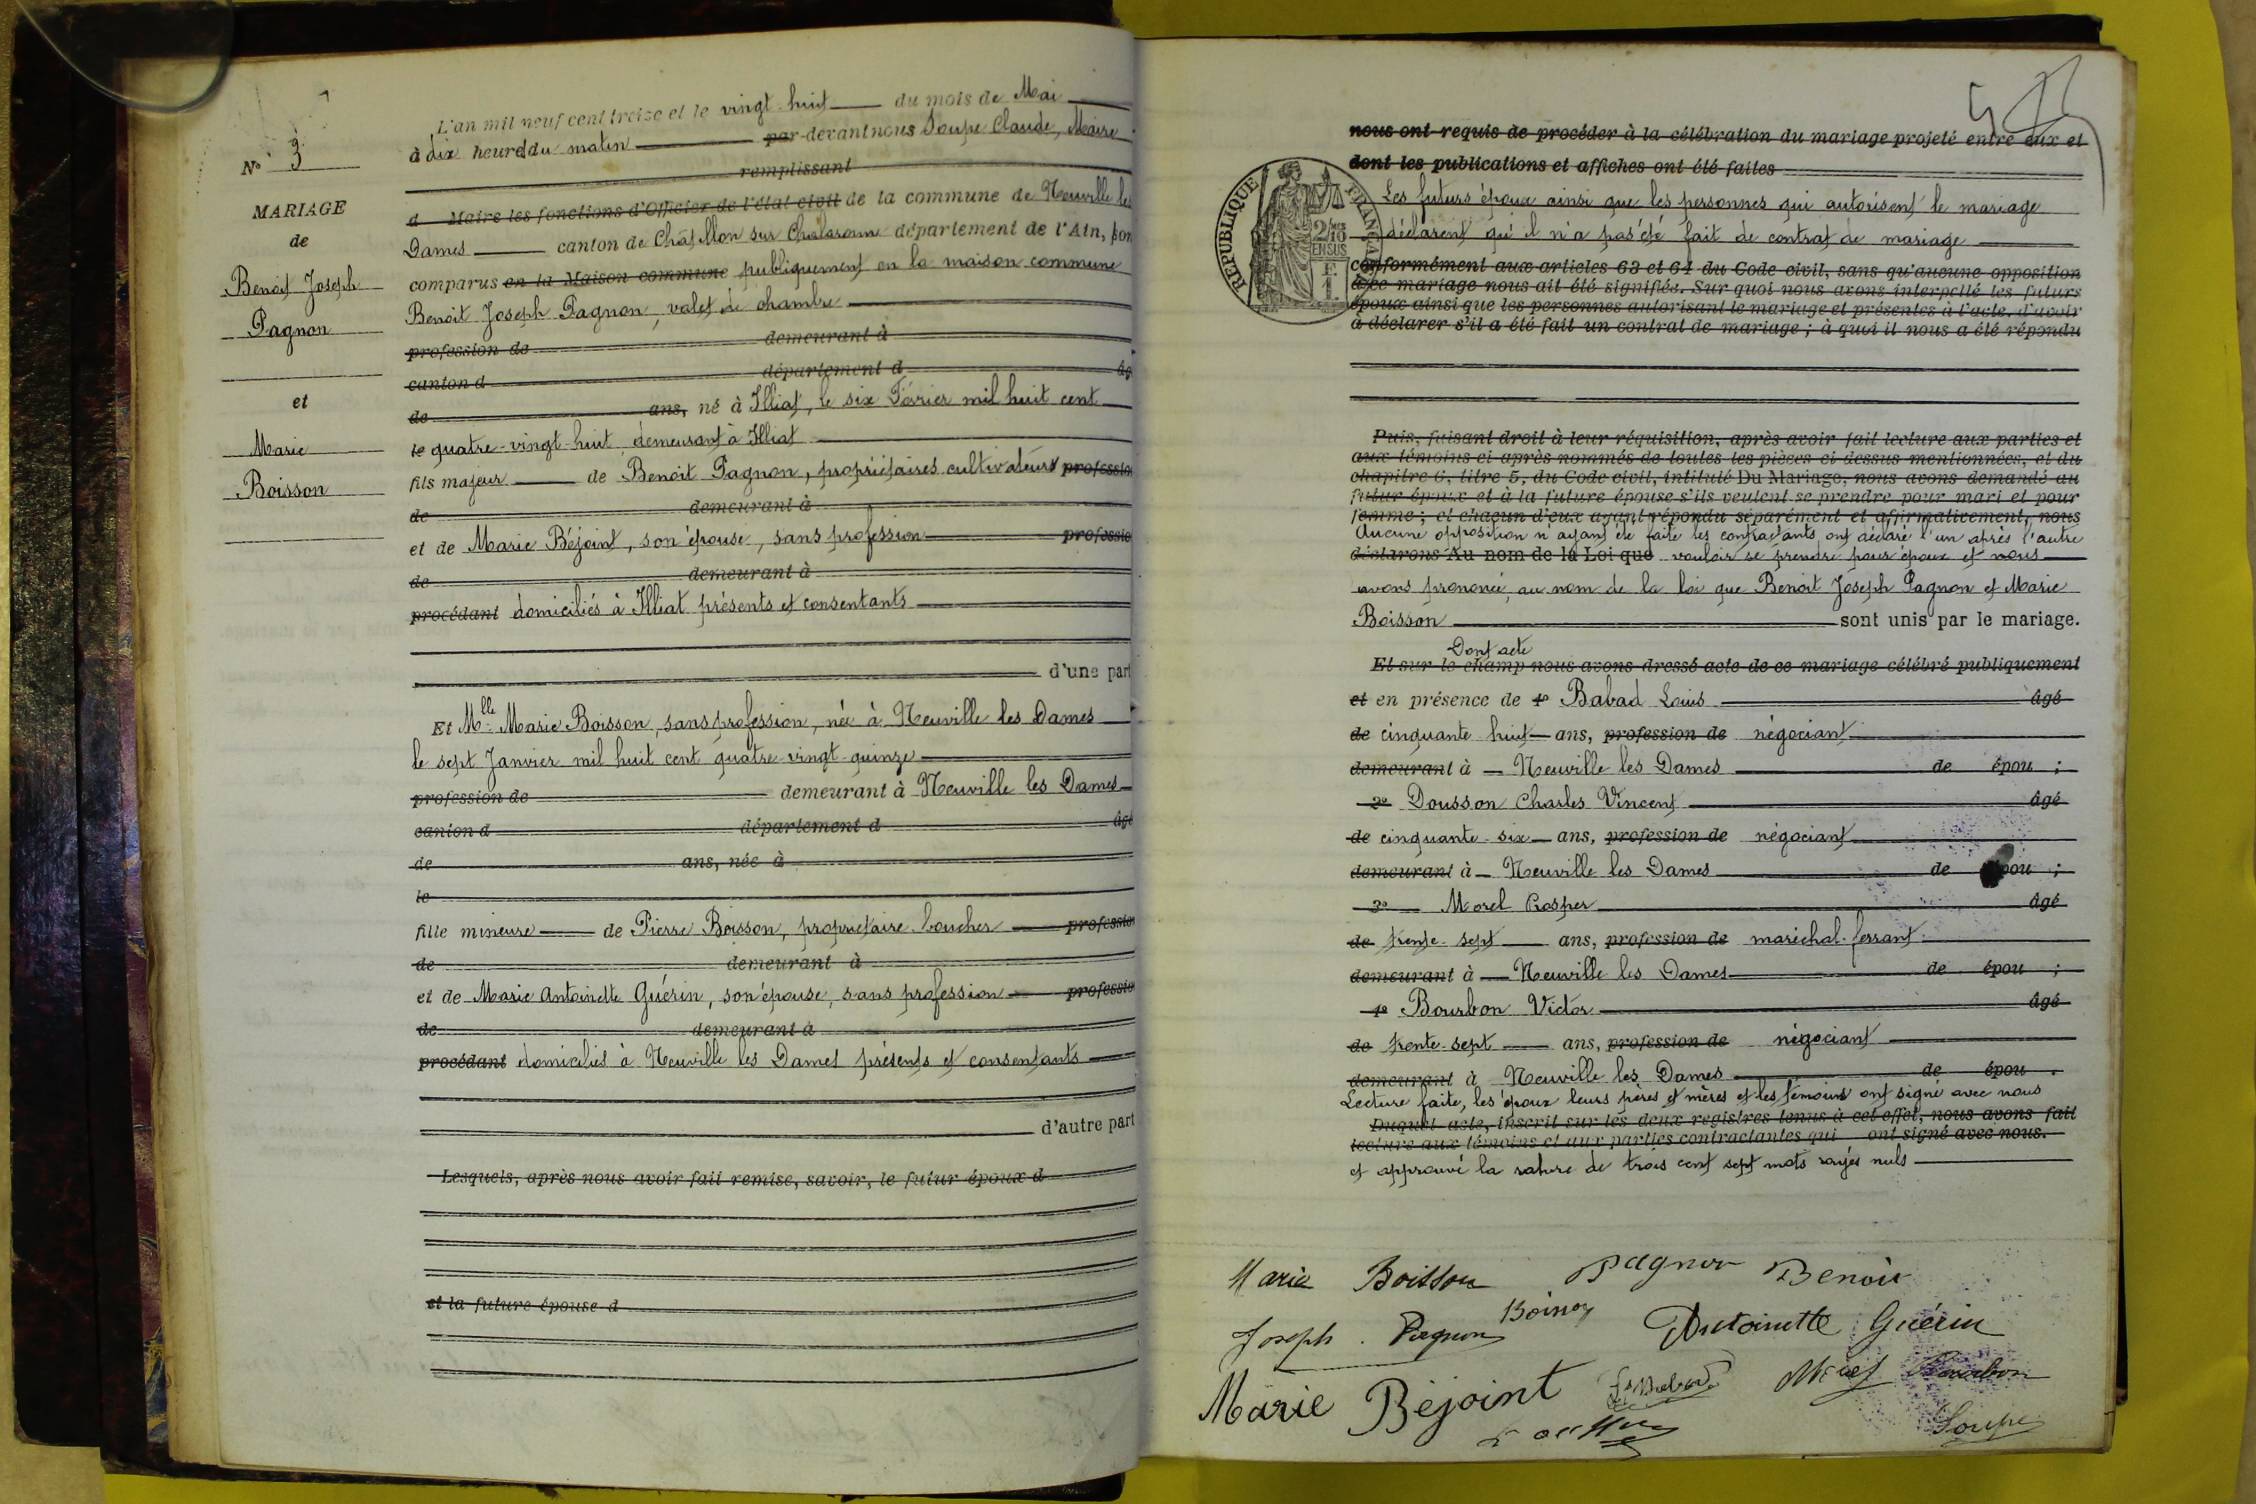 L'an mil neuf cent treize et le vingt-huit du mois de Mai
à dix heures du matin par-devant nous Soupe Claude, Maire
remplissant
d Maire les fonctions d'Officier de l'état civil de la commune de Neuville les
Dames canton de Châtillon sur Chalaronne département de l'Ain, son
comparus en la Maison commune publiquement en la maison commune
Benoit Joseph Pagnon, valet de chambre
profession de demeurant à
canton d département d âg
de ans, né à Illiat, le six Février mil huit cent
le quatre-vingt-huit demeurant à Illiat
fils majeur de Benoit Pagnon, propriétaires cultivateurs professio
de demeurant à
et de Marie Béjoint, son épouse, sans profession professio
de demeurant à
procédant domiciliés à Illiat présents et consentants
d'une part
Et Mlle Marie Boisson, sans profession, née à Neuville les Dames
le sept Janvier mil huit cent quatre-vingt-quinze
profession de demeurant à Neuville les Dames
canton d département d âgé
de ans, née à
le
fille mineure de Pierre Boisson, propriétaire boucher profession
de demeurant à
et de Marie Antoinette Guérin, son épouse, sans profession professio
de demeurant à
procédant domiciliés à Neuville les Dames présents et consentants
d'autre part
Lesquels, après nous avoir fait remise, savoir, le futur époux d
et la future épouse d
N° 3
MARIAGE
de
Benoit Joseph
Pagnon
et
Marie
Boisson
nous ont requis de procéder à la célébration du mariage projeté entre eux et
dont les publications et affiches ont été faites
RÉPUBLIQUE FRANÇAISE
2/10
EN SUS
Les futurs époux ainsi que les personnes qui autorisent le mariage
déclarent qu'il n'a pas été fait de contrat de mariage
conformément aux articles 63 et 64 du Code civil, sans qu'aucune opposition
à ce mariage nous ait été signifiée. Sur quoi nous avons interpellé les futurs
époux ainsi que les personnes autorisant le mariage et présentes à l'acte, d'avoir
à déclarer s'il a été fait un contrat de mariage ; à quoi il nous a été répondu
Puis, faisant droit à leur réquisition, après avoir fait lecture aux parties et
aux témoins ci après nommés de toutes les pièces ci dessus mentionnées, et du
chapitre 6, titre 5, du Code civil, intitulé Du Mariage, nous avons demandé au
futur époux et à la future épouse s'ils veulent se prendre pour mari et pour
femme ; et chacun d'eux ayant répondu séparément et affirmativement, nous
Aucune opposition n'ayant été faite les contractants ont déclaré l'un après l'autre
déclarons Au nom de la Loi que vouloir se prendre pour époux et nous
avons prononcé, au nom de la loi que Benoit Joseph Pagnon et Marie
Boisson sont unis par le mariage.
Dont acte
Et sur le champ nous avons dressé acte de ce mariage célébré publiquement
et en présence de 1° Babad Louis âgé
de cinquante huit ans, profession de négociant
demeurant à Neuville les Dames de épou ;
2° Dousson Charles Vincent âgé
de cinquante-six ans, profession de négociant
demeurant à Neuville les Dames de épou ;
3° Morel Prosper âgé
de trente-sept ans, profession de maréchal-ferrant
demeurant à Neuville les Dames de épou ;
4° Bourbon Victor âgé
de trente-sept ans, profession de négociant
demeurant à Neuville les Dames de épou .
Lecture faite, les époux leurs pères et mères et les témoins ont signé avec nous
Duquel acte, inscrit sur les deux registres tenus à cet effet, nous avons fait
lecture aux témoins et aux parties contractantes qui ont signé avec nous.
et approuvé la rature de trois cent sept mots rayés nuls
Marie Boisson Pagnon Benoit
Joseph Pagnon Boisson Antoinette Guérin
Marie Béjoint Babad Morel Bourbon
Soupe